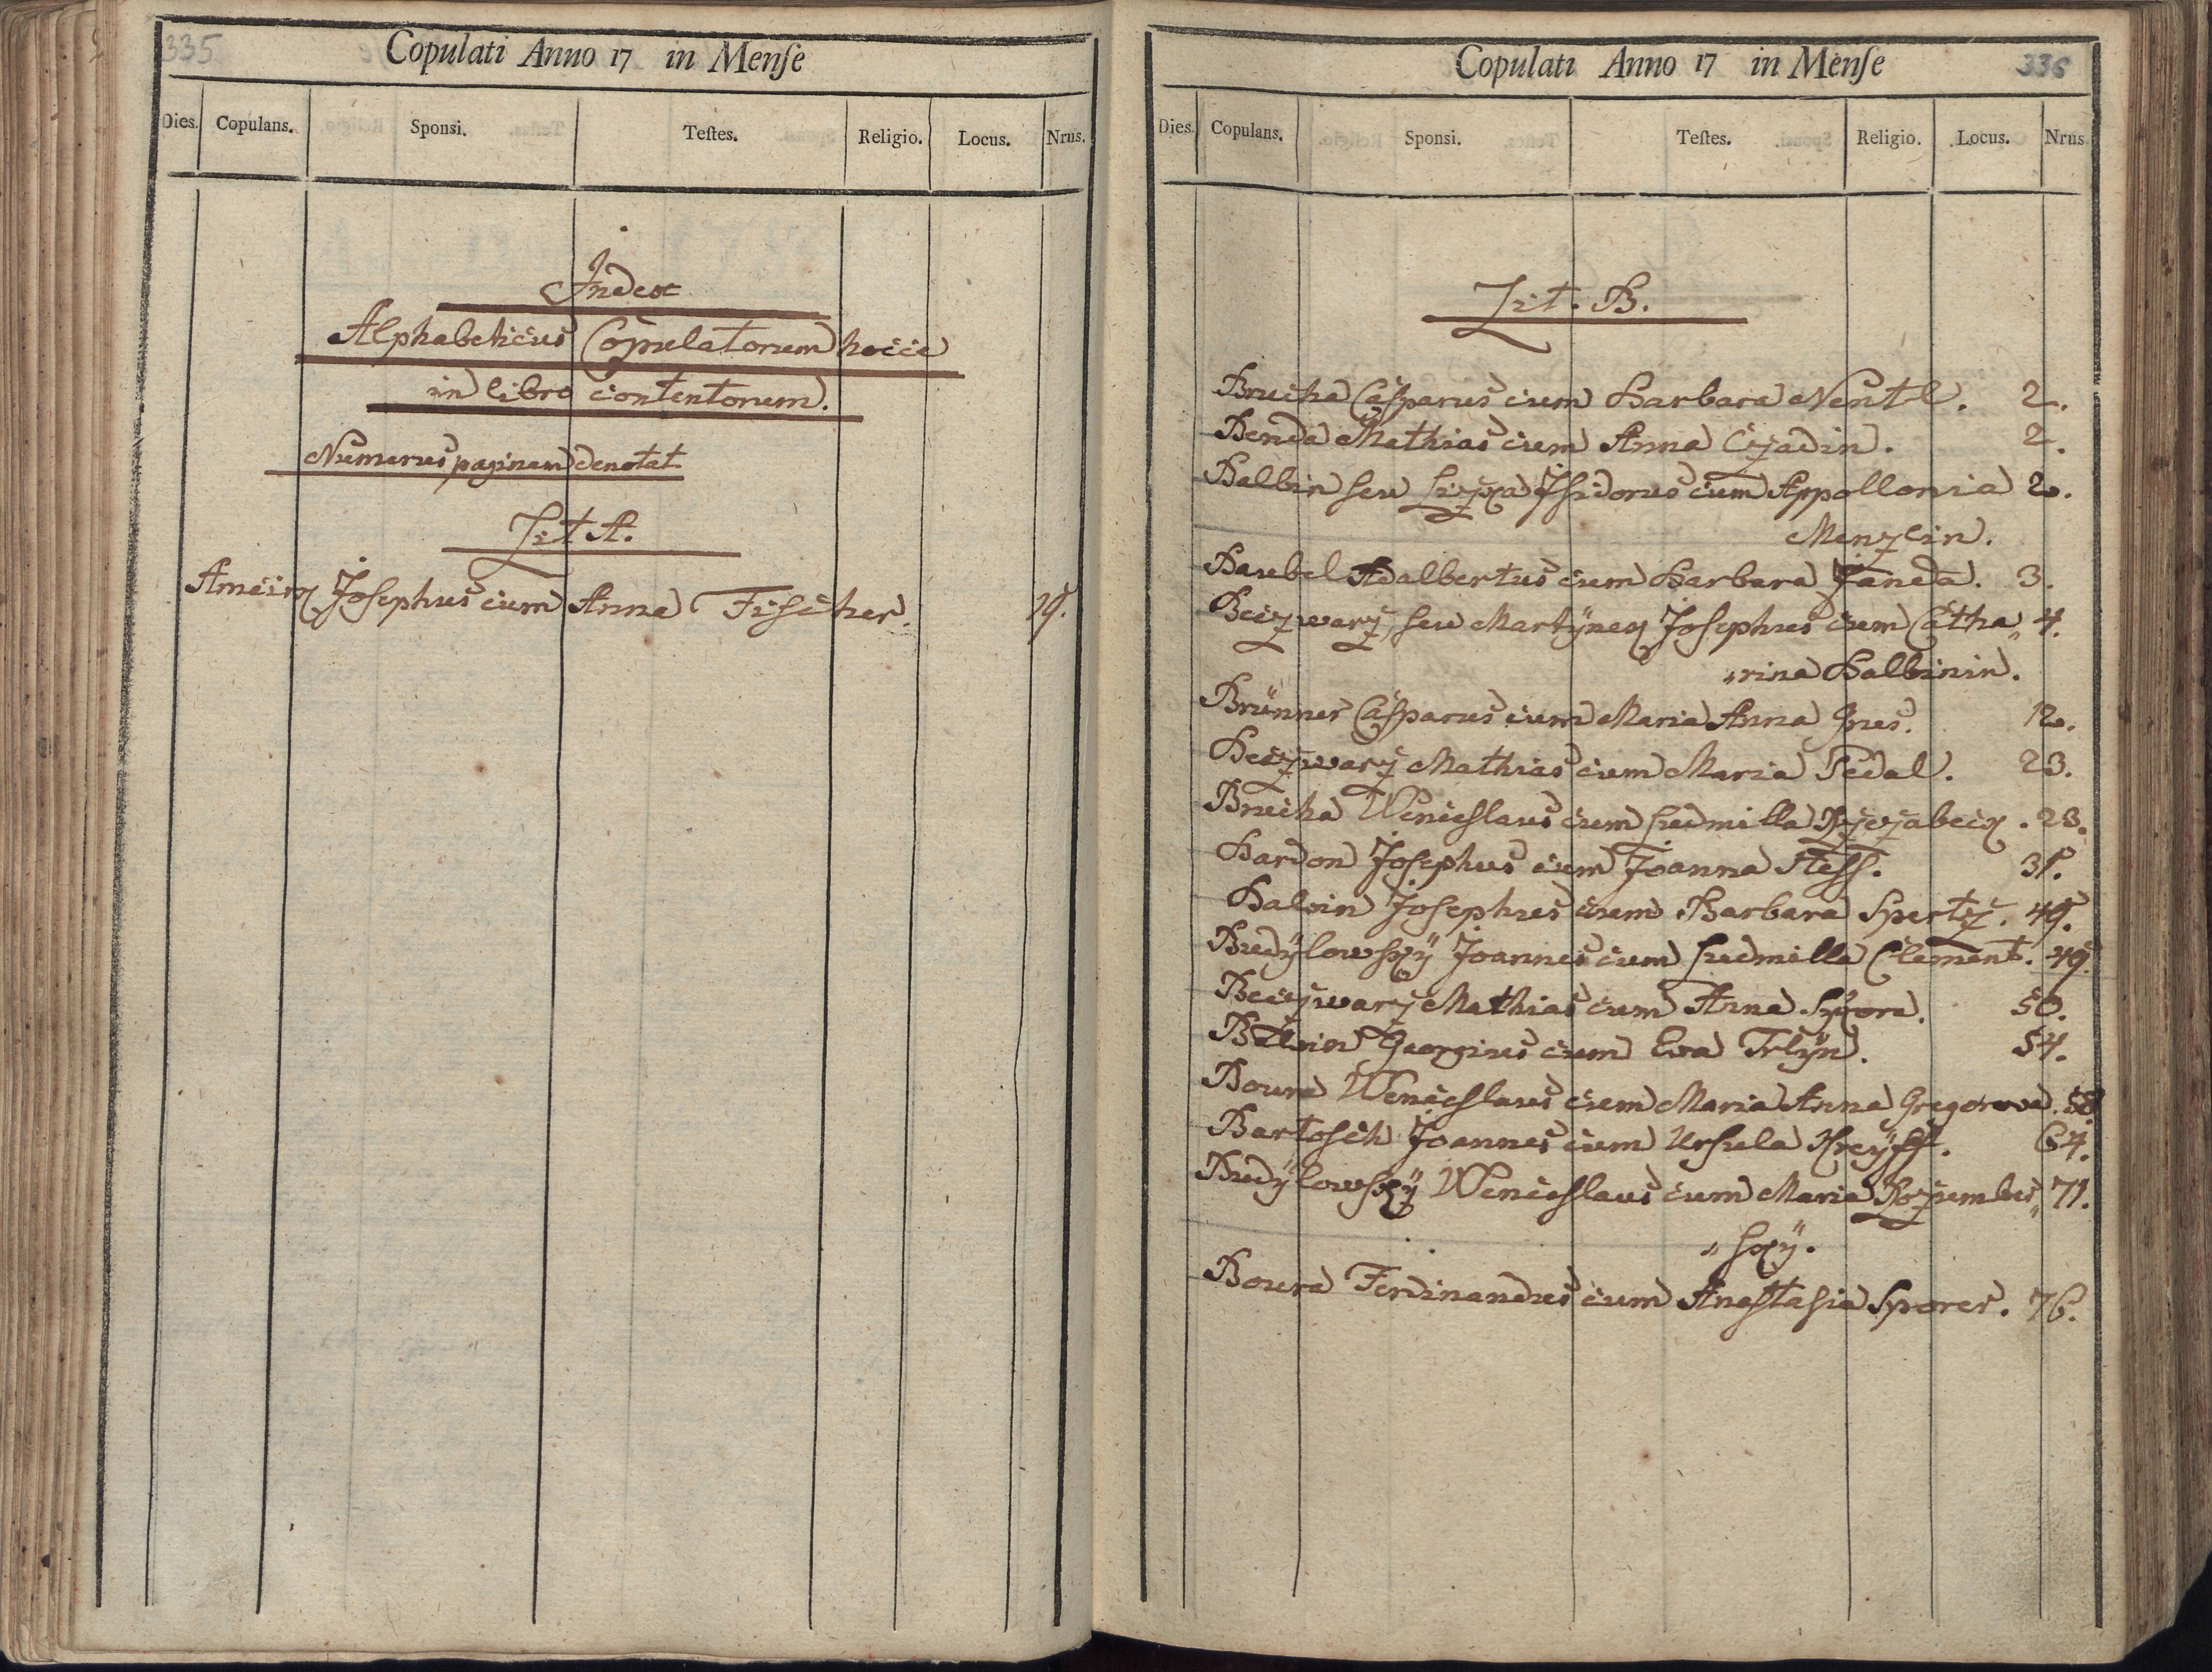 335
Copulati Anno 17 in Menſe
Dies. Copulans. Sponsi. Teſtes. Religio. Locus. Nrus.
Index
Alphabeticus Copulatorum hocce
in libro contentorum.
Numerus paginam denotat
Lit A.
Josephus cum Anna Fischer. 19.
Copulati Anno 17 in Menſe 336
Dies. Copulans. Sponsi. Teſtes. Religio. Locus. Nrus
Lit. B.
Brucha Caſparus cum Barbara Nentl. 2.
Benda Mathias cum Anna Czadin. 2.
Balbin ſeu Iſidorus cum Appollonia 2.
Menzlin.
Baubel Adalbertus cum Barbara Janda. 3.
Beczwarz ſeu Martÿnek Joſephus cum Catha„ 4.
„rina Balbinin.
Brünner Caſparus cum Maria Anna 12.
Beczwarz Mathias cum Maria Pedal. 23.
Brucha Wenceſlaus cum Ludmilla 23.
Bardon Joſephus cum Joanna 31.
Balvin Joſephus cum Barbara 49.
Budÿlowſkÿ Joannes cum Ludmilla Clement. 49.
Beczwarz Mathias cum Anna Sÿkora. 50.
Balvin Georgius cum Eva Trlÿn. 54.
Boura Wenceſlaus cum Maria Anna Gregorova. 58
Bartosch Joannes cum Urſula 64.
Budÿlowſkÿ Wenceſlaus cum Maria Rozumbec„ 71.
„ſkÿ.
Boura Ferdinandus cum Anaſtaſia Sporer. 76.